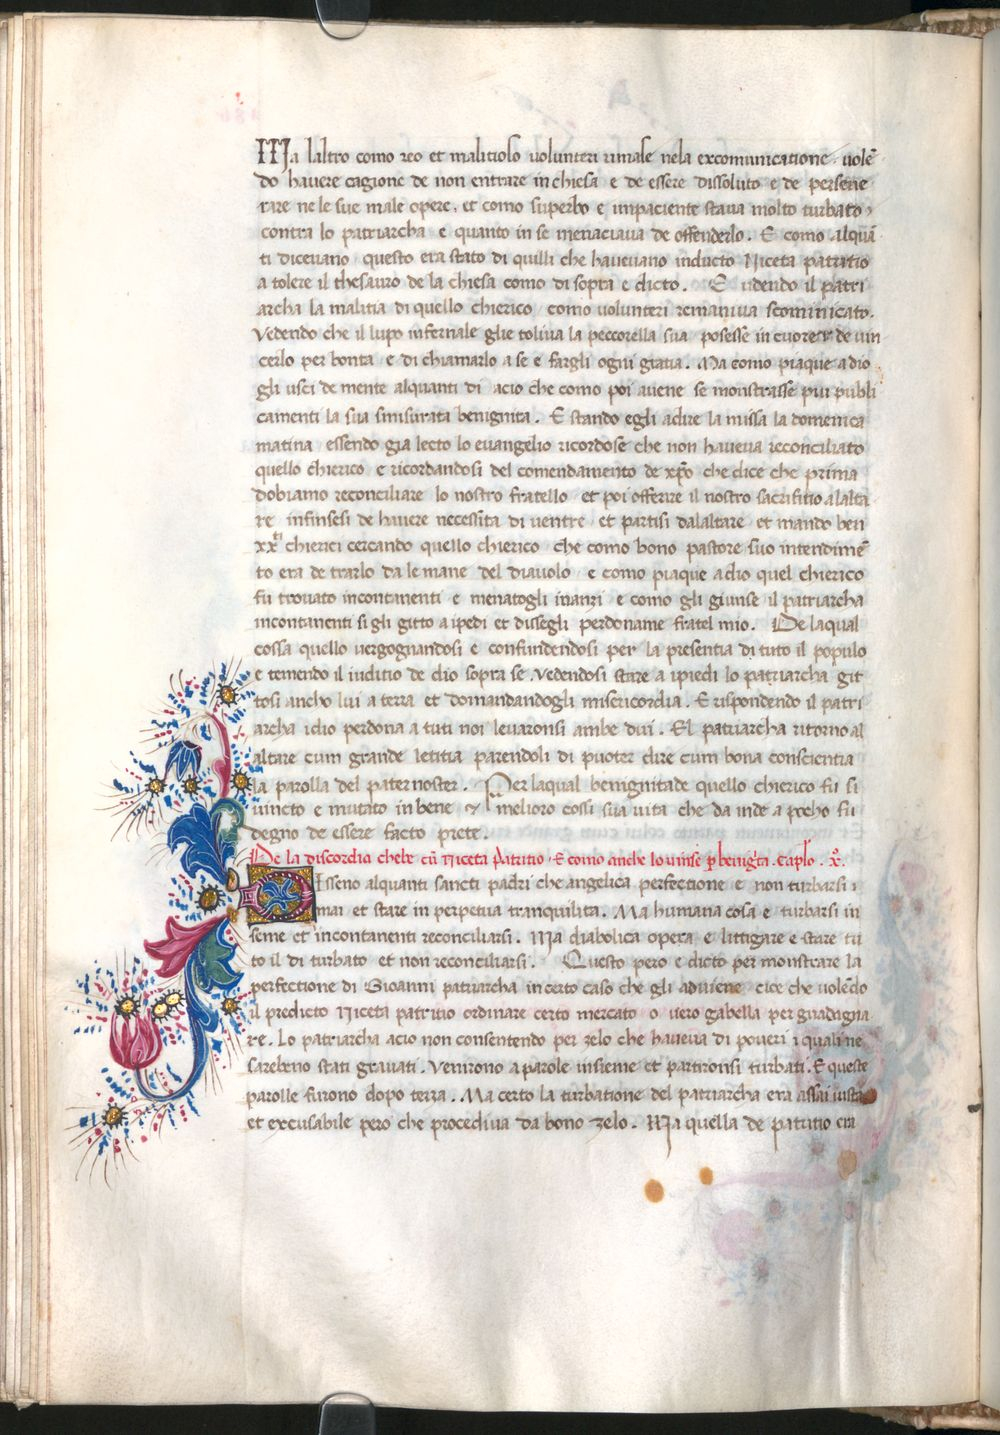 Ma laltro como reo et malitioso volunteri rimase nela excomunicatione · uolē
do hauere cagione de non entrare in chiesa e de essere dissoluto e de perseue
rare ne le sue male opere, et como superbo e inpaciente staua molto turbato
contra lo patriarcha e quanto in se menaciaua de offenderlo. E como alquā
ti diceuano questo era stato di quilli che haueuano inducto Niceta patritio
a tolere il thesauro de la chiesa como di sopra e dicto. E uidendo il patri
archa la malitia di quello chierico como volunteri remaniua scominicato.
Vedendo che il lupo infernale glie toliua la peccorella sua posesse in cuore de uin
cerlo per bonta e di chiamarlo a se e fargli ogni gratia. Ma como piaque a dio
gli usci de mente alquanti di acio che como poi auene se monstrasse piu publi
camenti la sua smisurata benignita. E stando egli a dire la missa la domenica
matina essendo gia lecto lo euangelio ricordose che non haueua reconciliato
quello chierico e ricordandosi del comendamento de xp̄o che dice che prima
dobiamo reconciliare lo nostro fratello et poi offerire il nostro sacrifitio a laltà
re infinsesi de hauere necessita di uentre et partisi dalaltare et mando ben
xx chierici cercando quello chierico che como bono pastore suo intendimē
to era de trarlo da le mane del diauolo e como piaque a dio quel chierico
fu trouato incontanenti e menatogli inanzi e como gli giunse il patriarcha
incontanenti si gli gitto a ipedi et dissegli perdoname fratel mio. De laqual
cossa quello uergognandosi e confundendosi per la presentia di tuto il populo
e temendo il iuditio de dio sopra se. vedendosi stare a ipiedi lo patriarcha git
tosi ancho lui a terra et domandandogli misericordia. E rispondendo il patri
archa idio perdona a tuti noi leuaronsi ambe dui. El patriarcha ritorno al
altare cum grande letitia parendoli di puoter dire cum bona conscientia
la parolla del pater noster. Per laqual benignitade quello chierico fu si
uincto e mutato in bene & melioro cossi sua uita che da inde a pocho fu
degno de essere facto prete.
De la discordia chebe cū Niceta patritio · E como anche lo uinse p benigta. caplo. x̊.
Disseno alquanti sancti padri che angelica perfectione e non turbarsi i
mai et stare in perpetua tranquilita. Ma humana cosa e turbarsi in
seme et incontanenti reconciliarsi. Ma diabolica opera e littigare e stare tu
to il di turbato et non reconciliarsi. Questo pero e dicto per monstrare la
perfectione di Gioanni patriarcha in certo caso che gli aduiene cice che uolēdo
il predicto Niceta patritio ordinare certo mercato o uero gabella per guadagna
re. Lo patriarcha acio non consentendo per zelo che haueua di poueri i quali ne
sarebeno stati grauati. Venirono a parole insieme et partironsi turbati. E queste
parolle furono dopo terza. Ma certo la turbatione del patriarcha era assai iusta
et excusabile pero che procediua da bono zelo. Ma quella de patritio era